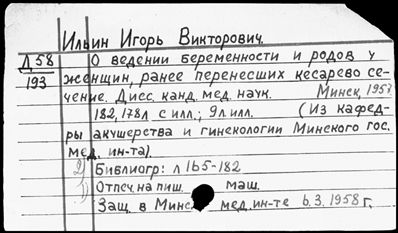 Ильин Игорь Викторович.
Д 58
193
О ведении беременности и родов у
женщин, ранее перенесших кесарево се-
чение. Дисс. канд. мед. наук. Минск, 1957
182, 178л с илл.; 9л илл. (Из кафед-
ры акушерства и гинекологии Минского гос.
мед. ин-та).
2) Библиогр: л 165-182
1) Отпеч. на пиш. маш.
Защ. в Минск. мед. ин-те 6.3.1958 г.